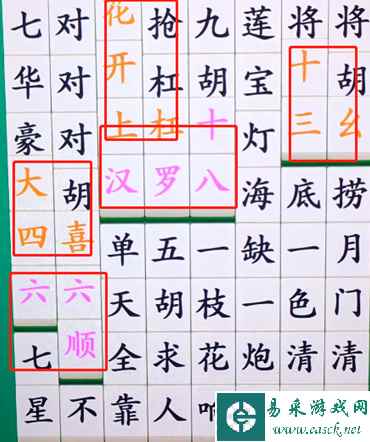 七对花抢九莲将将
华对开杠胡宝十胡
豪对上杠十灯三幺
大胡汉罗八海底捞
四喜单五一缺一月
六六天胡枝一色门
七顺全求花炮清清
星不靠人
易采游戏网